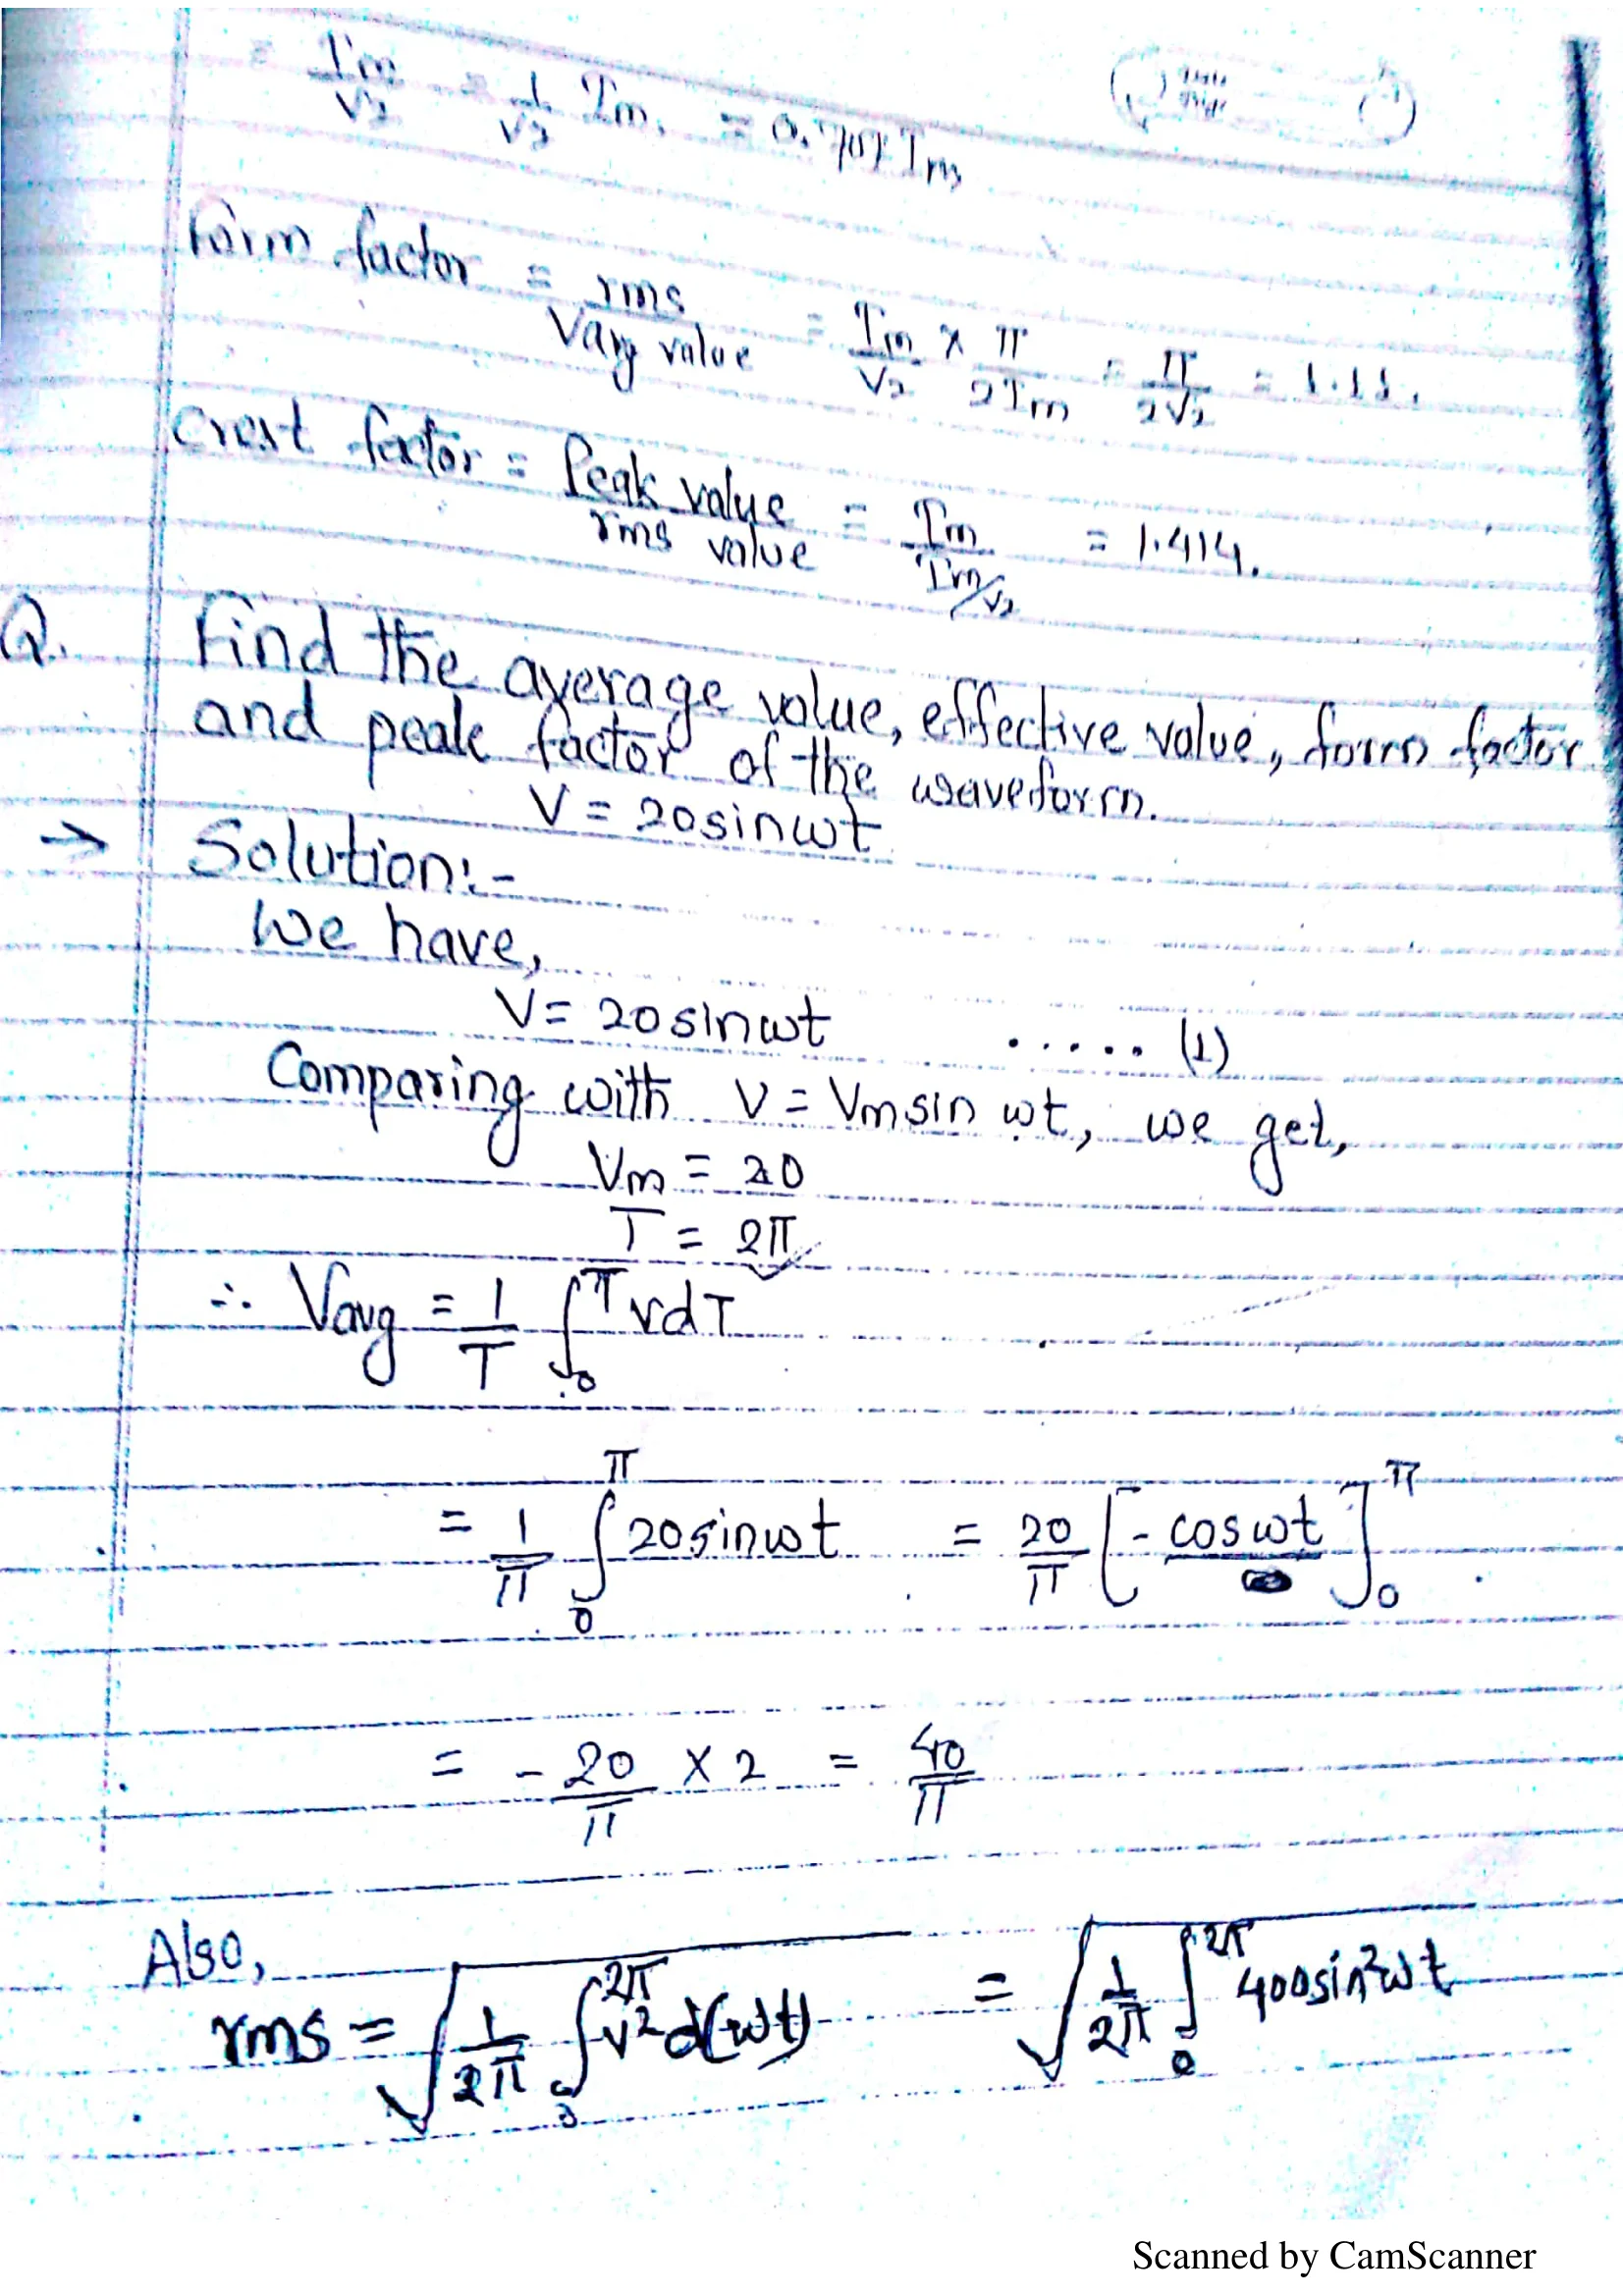 = Im/√2 = 1/√2 Im. = 0.707 Im
Form factor = rms / Vavg value = Im/√2 × π/2Im = π/2√2 = 1.11.
Crest factor = Peak value / rms value = Im / Im/√2 = 1.414.
Q. Find the average value, effective value, form factor
and peak factor of the waveform.
V = 20sinwt
→ Solution:-
We have,
V = 20sinwt ..... (1)
Comparing with V = Vmsin wt, we get,
Vm = 20
T = 2π
∴ Vavg = 1/T ∫₀^π vdT
= 1/π ∫₀^π 20sinwt = 20/π [- coswt]₀^π
= - 20/π × 2 = 40/π
Also,
rms = √(1/2π ∫₀^2π v²d(wt)) = √(1/2π ∫₀^2π 400sin²wt)
Scanned by CamScanner